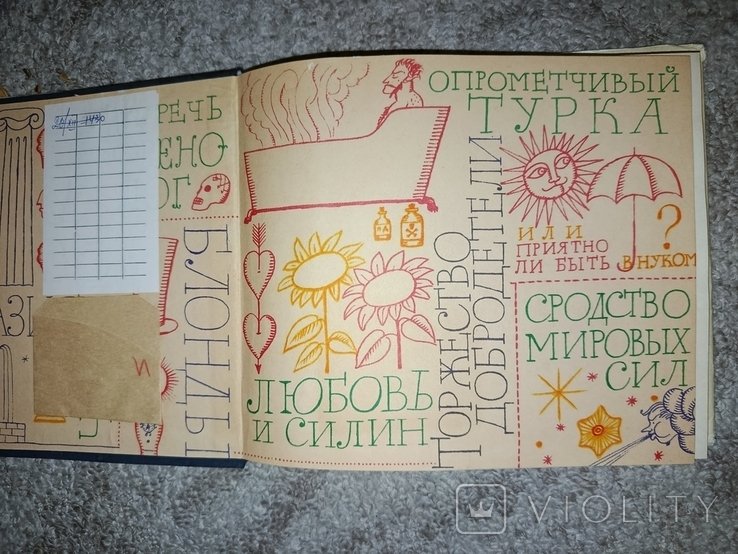 РЕЧЬ
ЕНО
ОГ
БЛОНДЫ
АЗИ
И
ОПРОМЕТЧИВЫЙ
ТУРКА
ИЛИ
ПРИЯТНО
ЛИ БЫТЬ ВНУКОМ
?
ТОРЖЕСТВО
ДОБРОДЕТЕЛИ
ЛЮБОВЬ
И СИЛИН
СРОДСТВО
МИРОВЫХ
СИЛ
VIOLITY